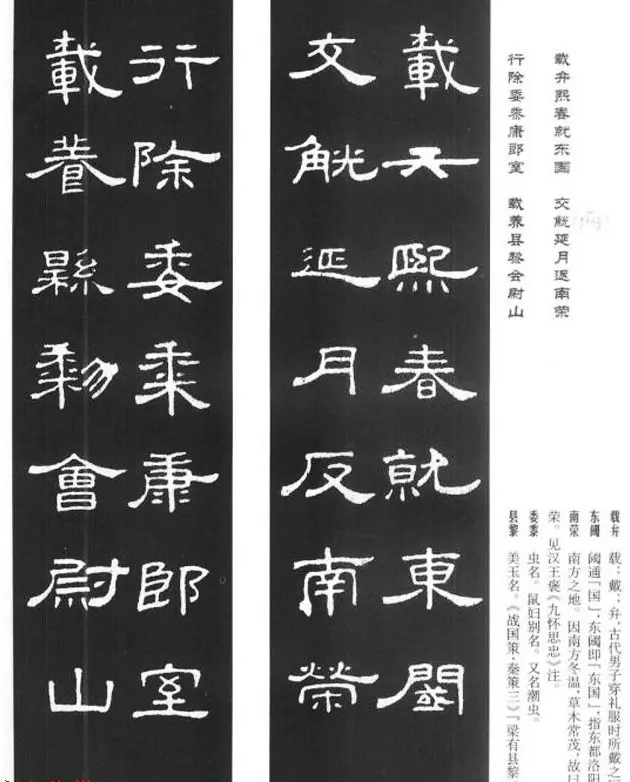 载弁熙春就东国 交觥延月返南荣
行除委黍康郎室 载养县黎会尉山
载弁 载：戴；弁，古代男子穿礼服时所戴之
东阈 阈通「国」，东國即「东国」，指东都洛阳
南荣 南方之地。因南方冬温，草木常茂，故曰
荣。见汉王褒《九怀思忠》注。
委黍 虫名。鼠妇别名。又名潮虫。
县黎 美玉名。《战国策·秦策三》「梁有县黎
載弁熙春就東閾
交觥延月反南榮
行除委黍康郎室
載養縣黎會尉山